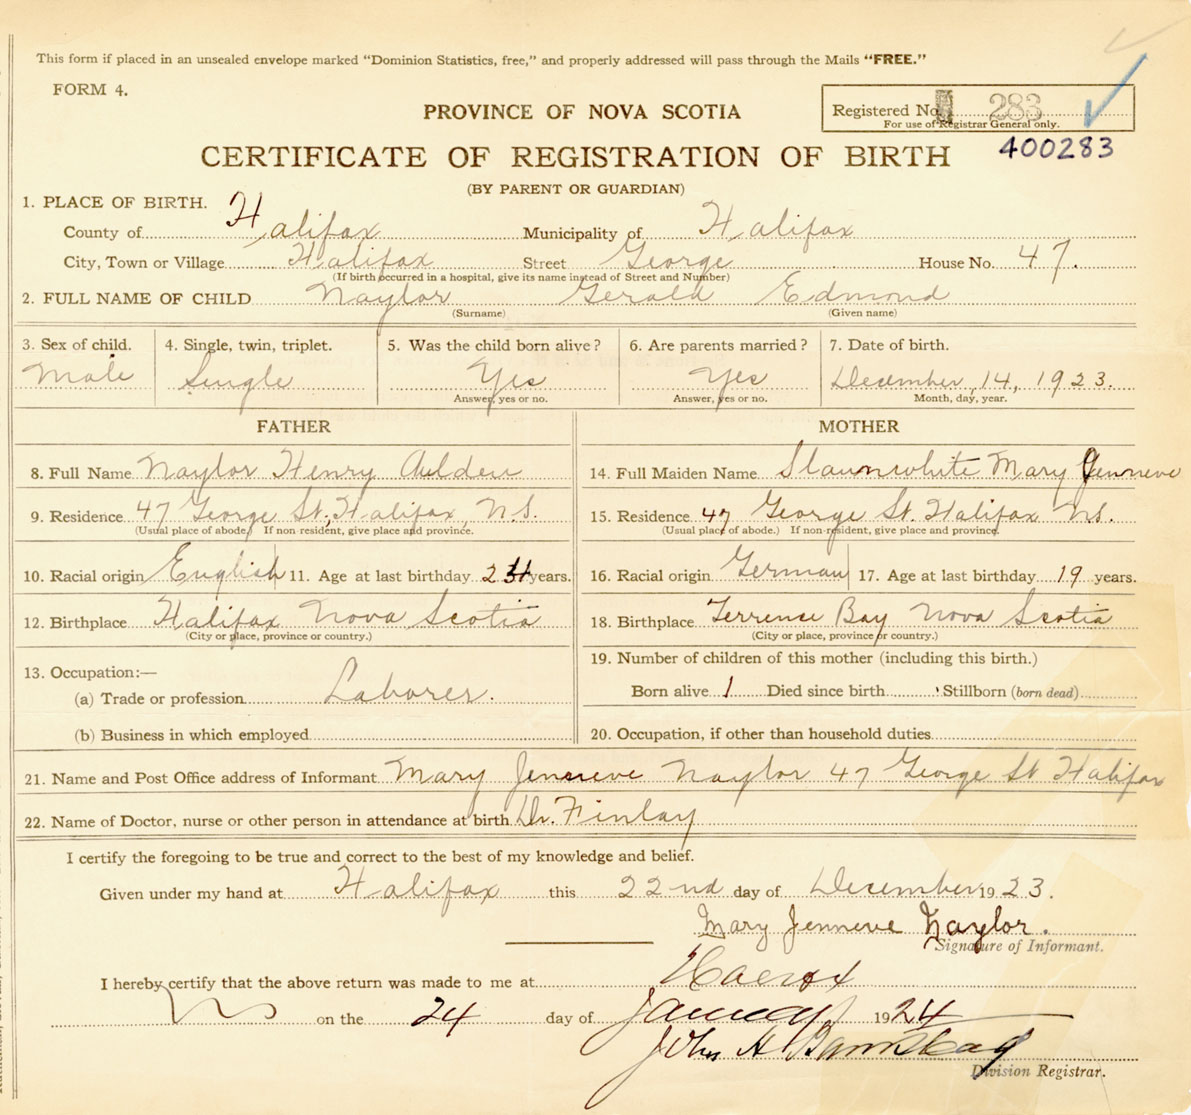 This form if placed in an unsealed envelope marked "Dominion Statistics, free," and properly addressed will pass through the Mails "FREE."
FORM 4.
PROVINCE OF NOVA SCOTIA
Registered No. 283
For use of Registrar General only.
400283
CERTIFICATE OF REGISTRATION OF BIRTH
(BY PARENT OR GUARDIAN)
1. PLACE OF BIRTH.
County of Halifax Municipality of Halifax
City, Town or Village Halifax Street George House No. 47.
(If birth occurred in a hospital, give its name instead of Street and Number)
2. FULL NAME OF CHILD Naylor Gerald Edmond
(Surname) (Given name)
3. Sex of child. 4. Single, twin, triplet. 5. Was the child born alive? 6. Are parents married? 7. Date of birth.
Male Single Yes Yes December, 14, 1923.
Answer, yes or no. Answer, yes or no. Month, day, year.
FATHER MOTHER
8. Full Name Naylor Henry Aulden 14. Full Maiden Name Slaunwhite Mary Jenneve
9. Residence 47 George St, Halifax, N.S. 15. Residence 47 George St. Halifax N.S.
(Usual place of abode. If non-resident, give place and province. (Usual place of abode.) If non-resident, give place and province.
10. Racial origin English 11. Age at last birthday years. 16. Racial origin German 17. Age at last birthday 19 years.
12. Birthplace Halifax Nova Scotia 18. Birthplace Terrence Bay Nova Scotia
(City or place, province or country.) (City or place, province or country.)
13. Occupation:— 19. Number of children of this mother (including this birth.)
(a) Trade or profession Laborer. Born alive 1 Died since birth Stillborn (born dead)
(b) Business in which employed 20. Occupation, if other than household duties
21. Name and Post Office address of Informant Mary Jenneve Naylor 47 George St Halifax
22. Name of Doctor, nurse or other person in attendance at birth Dr. Finlay
I certify the foregoing to be true and correct to the best of my knowledge and belief.
Given under my hand at Halifax this 22nd day of December 1923.
Mary Jenneve Naylor.
Signature of Informant.
I hereby certify that the above return was made to me at
on the 24 day of January 1924
John A
Division Registrar.